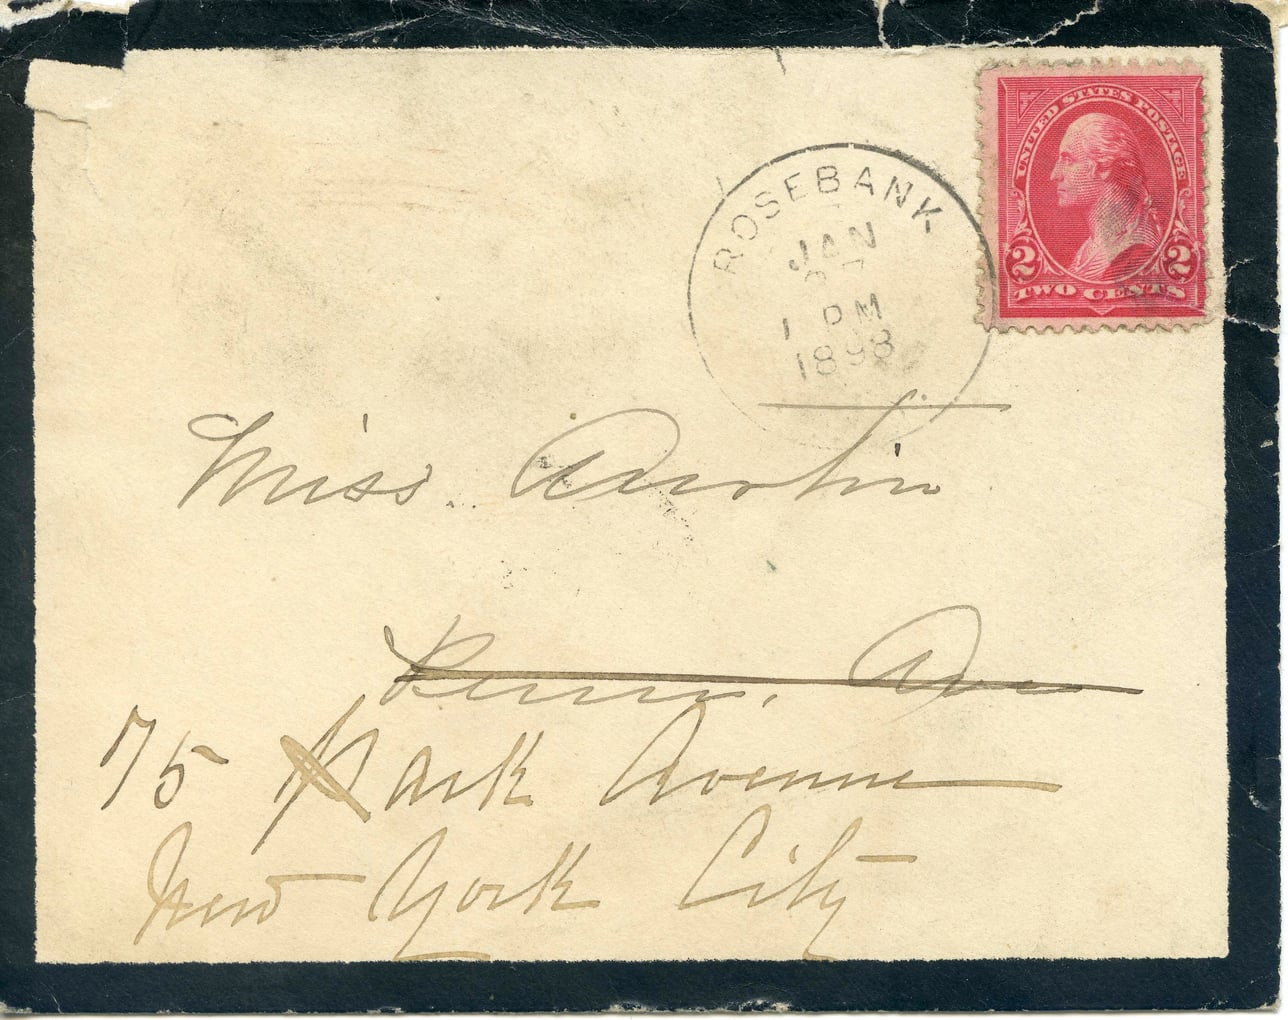 UNITED STATES POSTAGE
2 2
TWO CENTS
ROSEBANK
JAN
27
1 PM
1898
Miss. Austin
Penn. Ave
75 Park Avenue
New York City